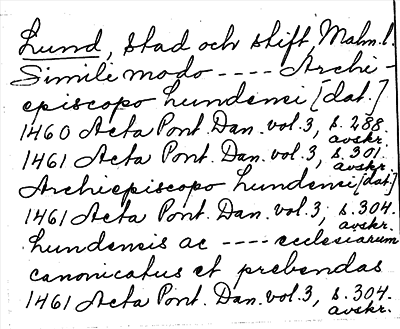 Lund, stad och stift, Malm. l.
Simili modo ---- Archi-
episcopo Lundensi [dat.]
1460 Acta Pont. Dan. vol. 3, s. 288.
avskr.
1461 Acta Pont. Dan. vol. 3, s. 301.
avskr.
Archiepiscopo Lundensi [dat.]
1461 Acta Pont. Dan. vol. 3, s. 304.
avskr.
Lundensis ac ---- ecclesiarum
canonicatus et prebendas
1461 Acta Pont. Dan. vol. 3, s. 304.
avskr.